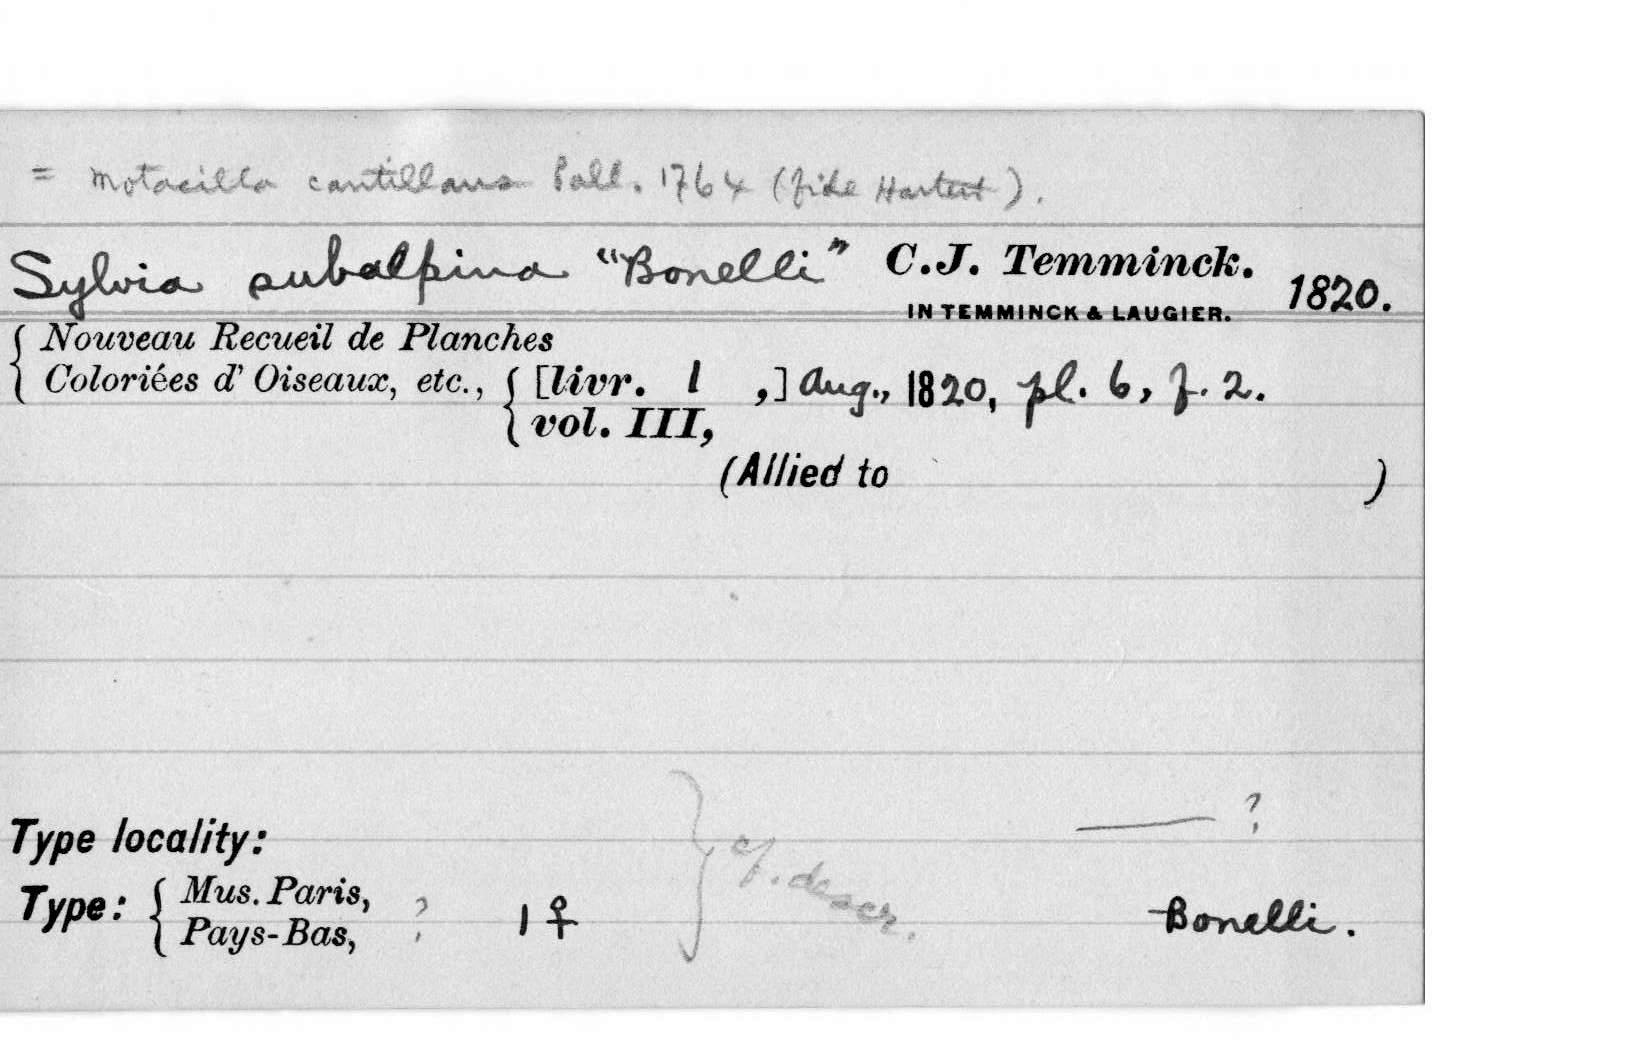 = Motacilla cantillans Pall. 1764 (fide Hartert).
Sylvia subalpina "Bonelli" C.J. Temminck. 1820.
IN TEMMINCK & LAUGIER.
Nouveau Recueil de Planches
Coloriées d' Oiseaux, etc., [livr. 1 ,] Aug., 1820, pl. 6, f. 2.
vol. III,
(Allied to )
Type locality: ?
Type: Mus. Paris,
Pays-Bas, ? 1 ♀ cf. descr. Bonelli.